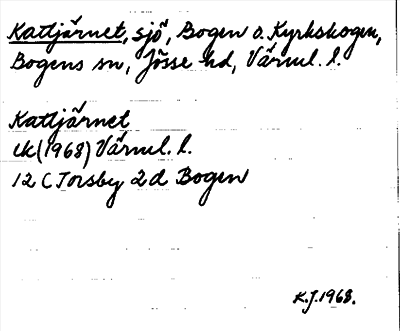 Kattjärnet, sjö, Bogen o. Kyrkskogen,
Bogens sn, Jösse hd, Värml. l.
Kattjärnet
ek (1968) Värml. l.
12 C Torsby 2d Bogen
K.J. 1968.